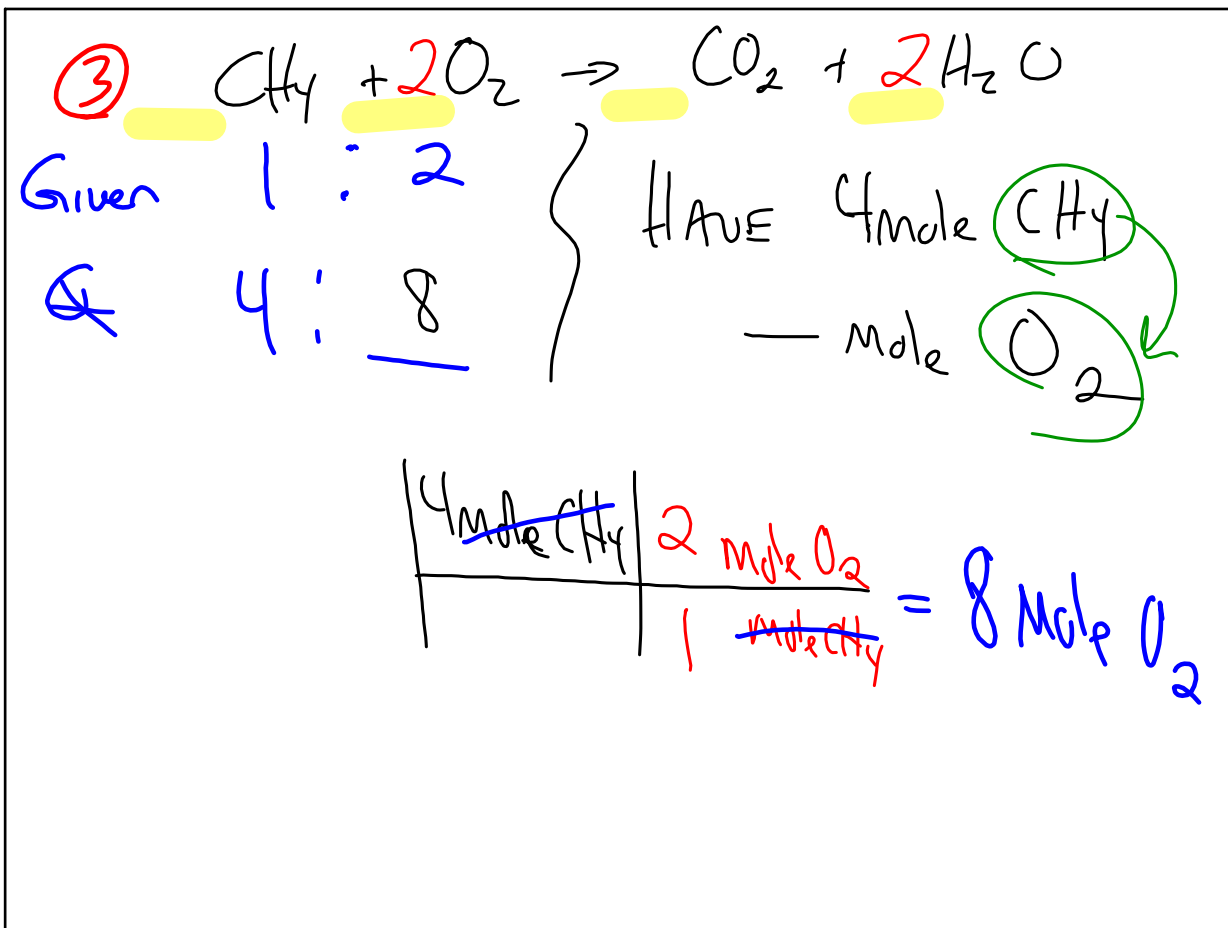 ③ CH4 + 2O2 → CO2 + 2H2O
Given 1 : 2
Q 4 : 8
HAVE 4 mole CH4
— mole O2
4 mole CH4 | 2 mole O2
1 mole CH4
= 8 mole O2